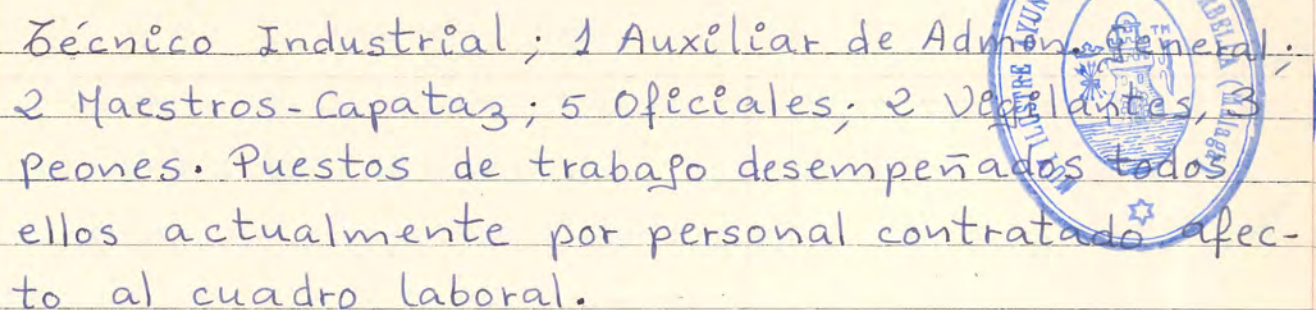 Técnico Industrial; 1 Auxiliar de Admon. General;
2 Maestros-Capataz; 5 Oficiales; 2 Vigilantes, 3
peones. Puestos de trabajo desempeñados todos
ellos actualmente por personal contratado afec-
to al cuadro laboral.
MUY ILUSTRE AYUN
RBELLA (Málaga)